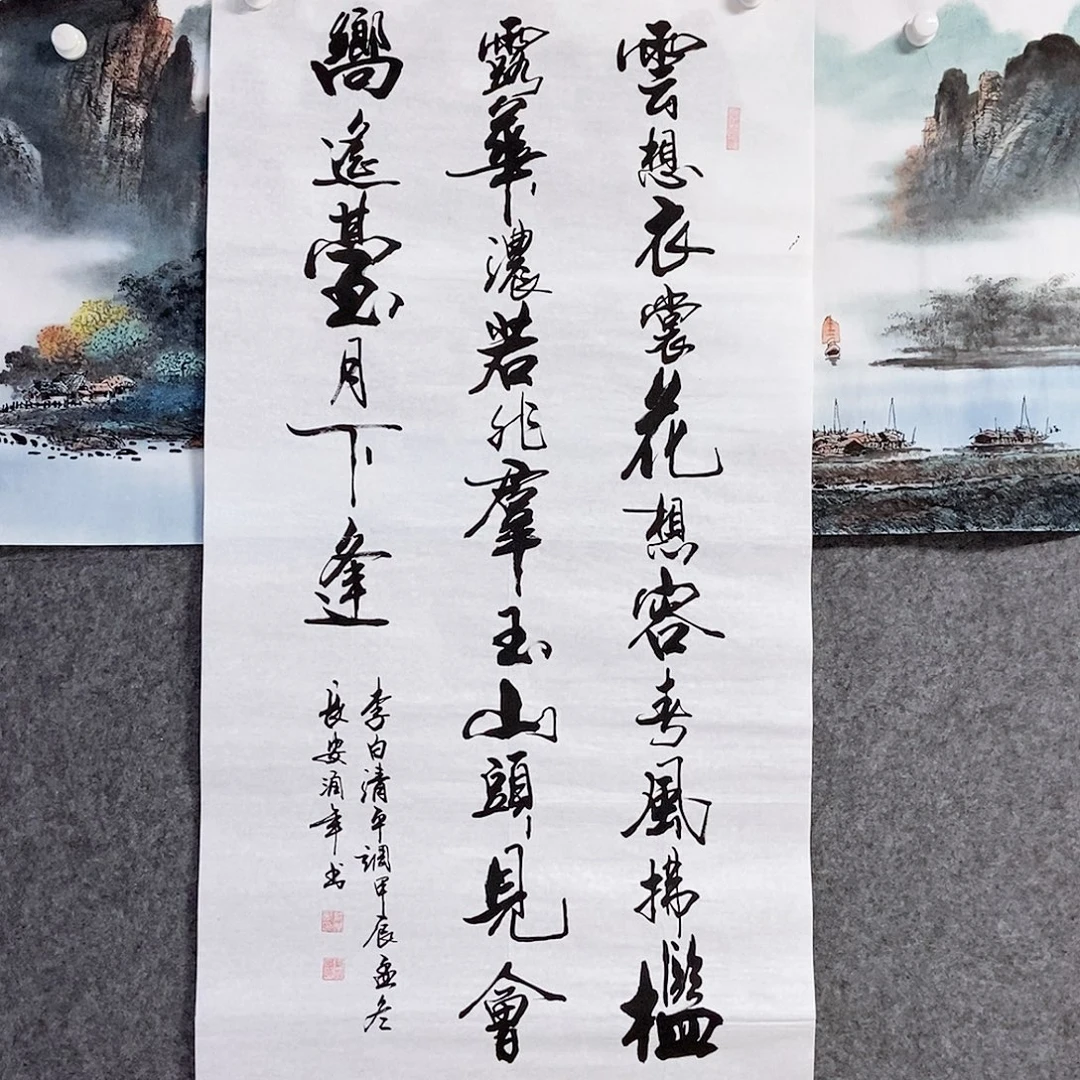 雲想衣裳花想容春風拂檻
露華濃若非羣玉山頭見會
嚮遙臺月下逢
李白清平調甲辰孟冬
長安酒年书